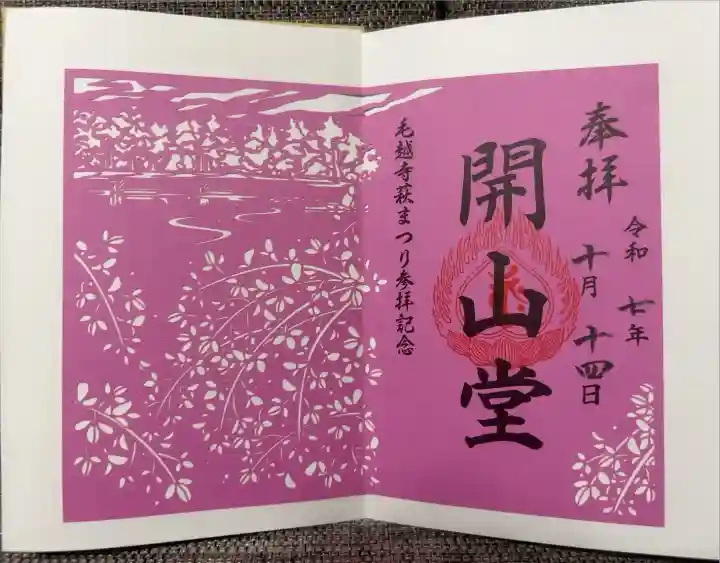 奉拝
令和七年
十月十四日
開山堂
毛越寺萩まつり参拝記念